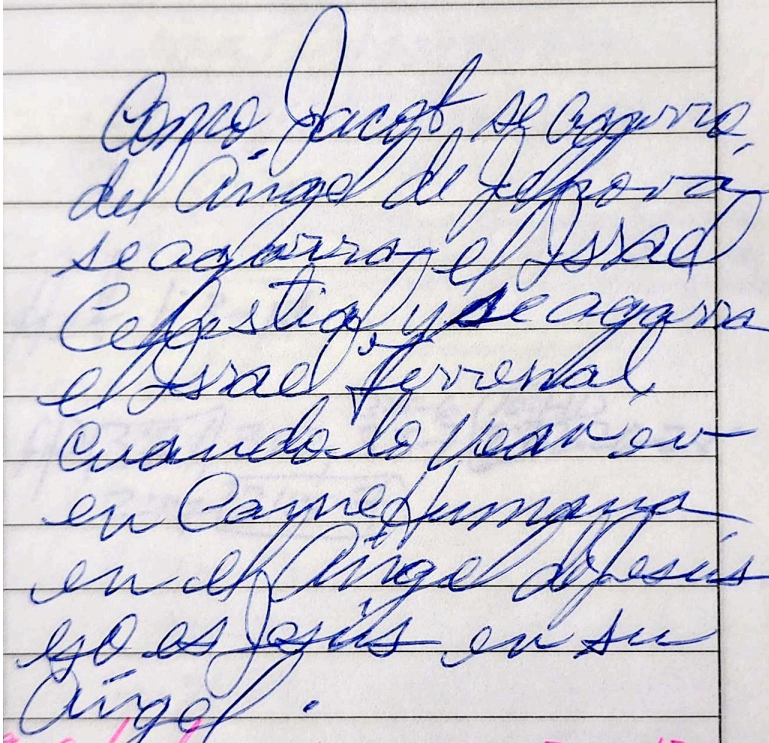 Como Jacob se agarró
del Ángel de Jehová
se agarra el Israel
Celestial, y se agarra
el Israel terrenal
cuando lo vean en
en Carne humana
en el Ángel de Jesús
eso es Jesús en su
Ángel.